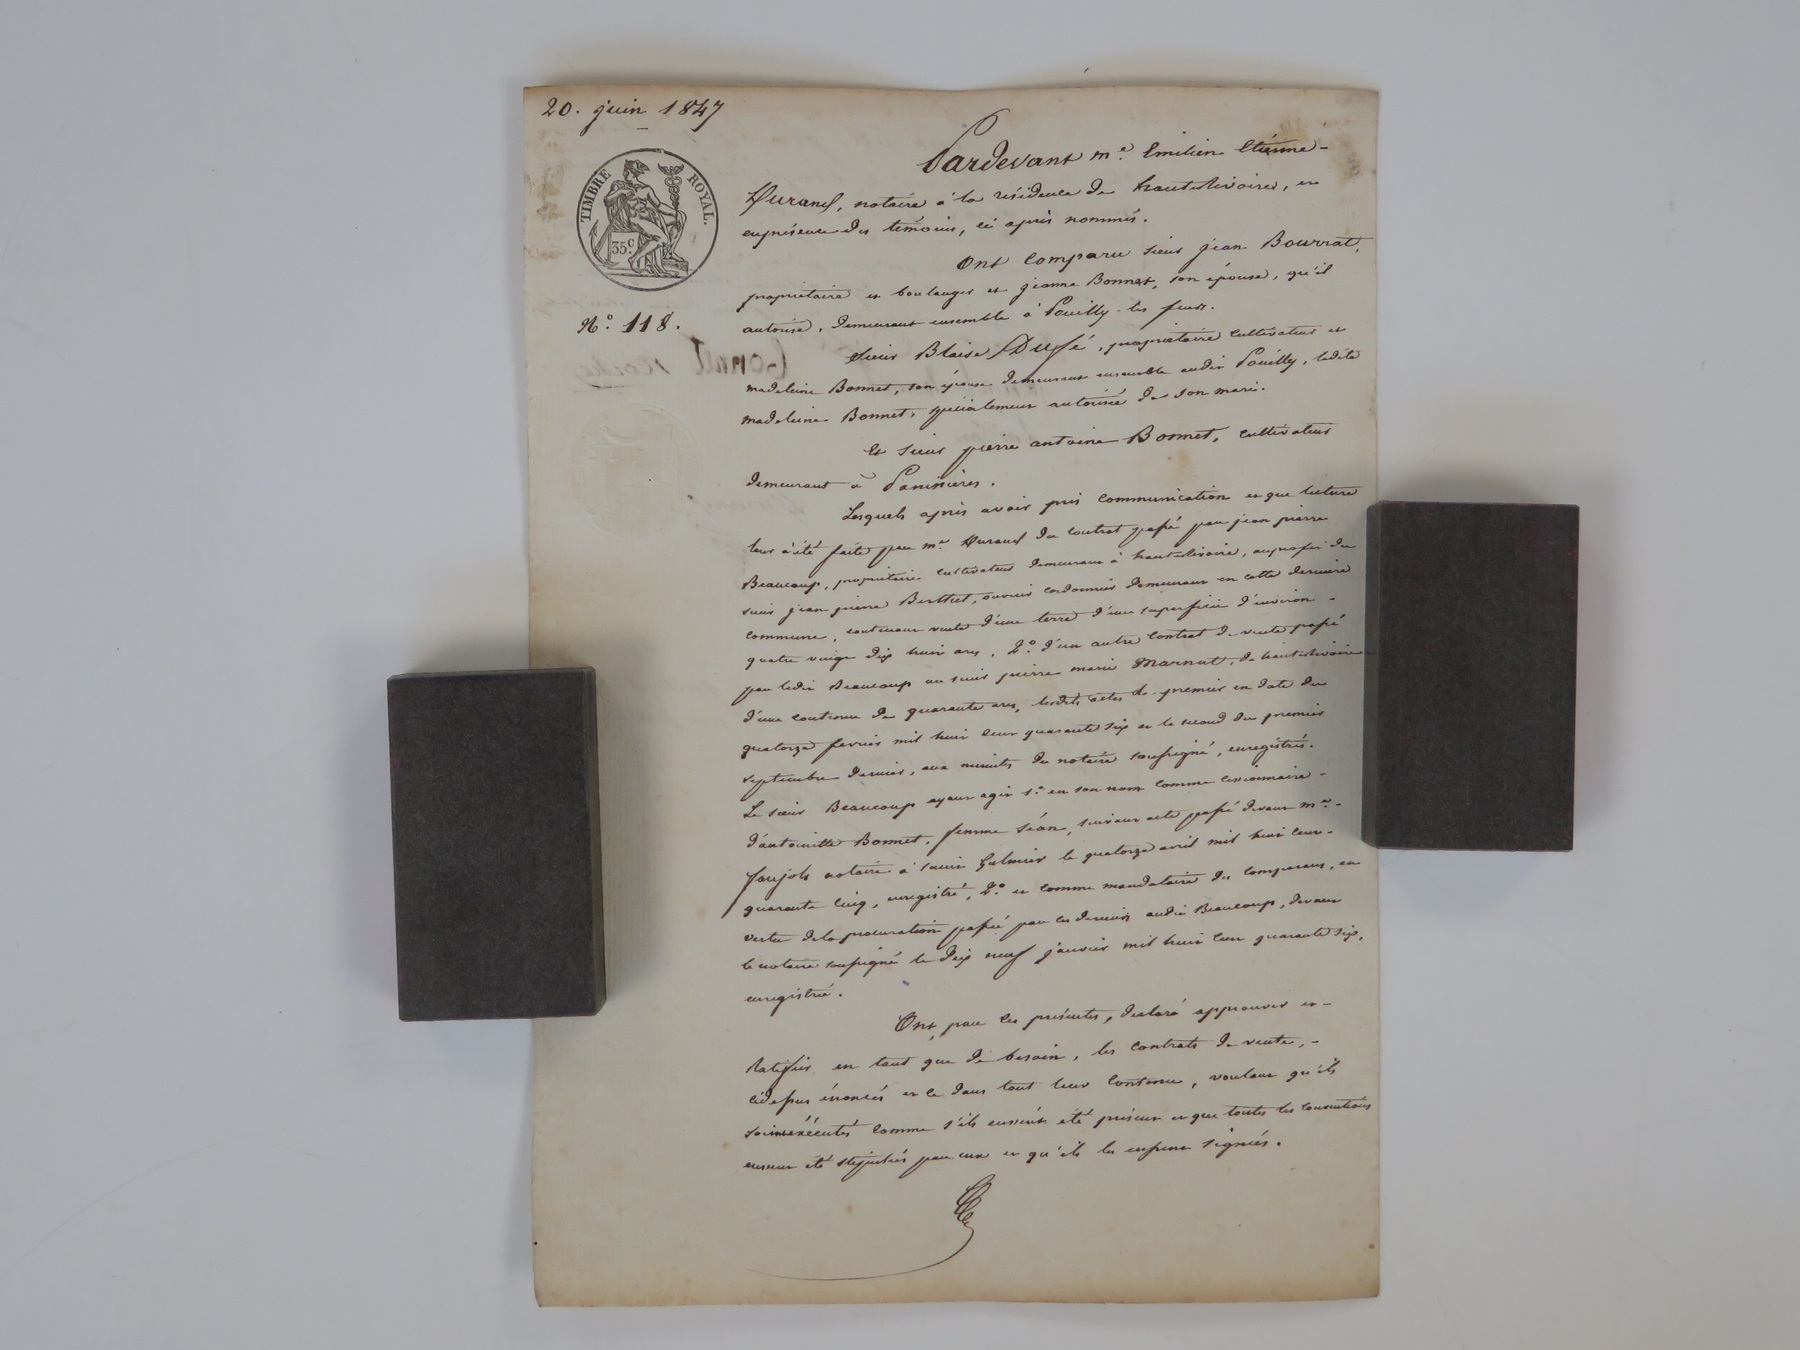 20. juin 1847
TIMBRE ROYAL.
35c.
N.° 118.
Pardevant me. Emilien Etienne-
Durand, notaire à la résidence de hauterivoire, en
enprésence des témoins, ci après nommés.
Ont comparu sieur jean Bourrat,
propriétaire et boulanger et jeanne Bonnet, son épouse, qu'il
autorise, demeurant ensemble à Pouilly les feurs.
Sieur Blaise , propriétaire cultivateur et
madeleine Bonnet, son épouse demeurant ensemble audit Pouilly, ladite
madeleine Bonnet, spécialement autorisée de son mari.
Et sieur pierre antoine Bonnet, cultivateur
demeurant à Panissières.
Lesquels après avoir pris communication et que lecture
leur à été faite par me. Durand du contrat passé par jean pierre
Beaucoup, propriétaire cultivateur demeurant à hauterivoire, auprofit du
sieur jean pierre Berthet, ouvrier cordonnier demeurant en cette dernière
commune, contenant vente d'une terre d'une superficie d'environ -
quatre vingt dix huit ares, 2.° d'un autre contrat de vente passé
par ledit Beaucoup au sieur pierre marie Marnat, de hauterivoire
d'une contenue de quarante ares, lesdits actes le premier en date du
quatorze fevrier mil huit cent quarante six et le second du premier
septembre dernier, aux minutes du notaire soussigné, enregistrés.
Le sieur Beaucoup ayant agir 1.° en son nom comme cessionnaire -
d'antoinette Bonnet, femme , suivant acte passé devant me. -
notaire à saint Galmier le quatorze avril mil huit cent-
quarante cinq, enregistré, 2.° et comme mandataire des comparans, en
vertu dela procuration passée par ces derniers audit Beaucoup, devant
le notaire soussigné le dix neuf janvier mil huit cent quarante six,
enregistrée.
Ont, par ces présentes, déclaré approuver et-
Ratifier en tant que de besoin, les contrats de vente, -
cidessus énoncés et ce dans tout leur contenu, voulant qu'ils
soientexécutés comme s'ils eussent été présent et que toutes les conventions
eussent été stipulées par eux et qu'ils les eussent signées.